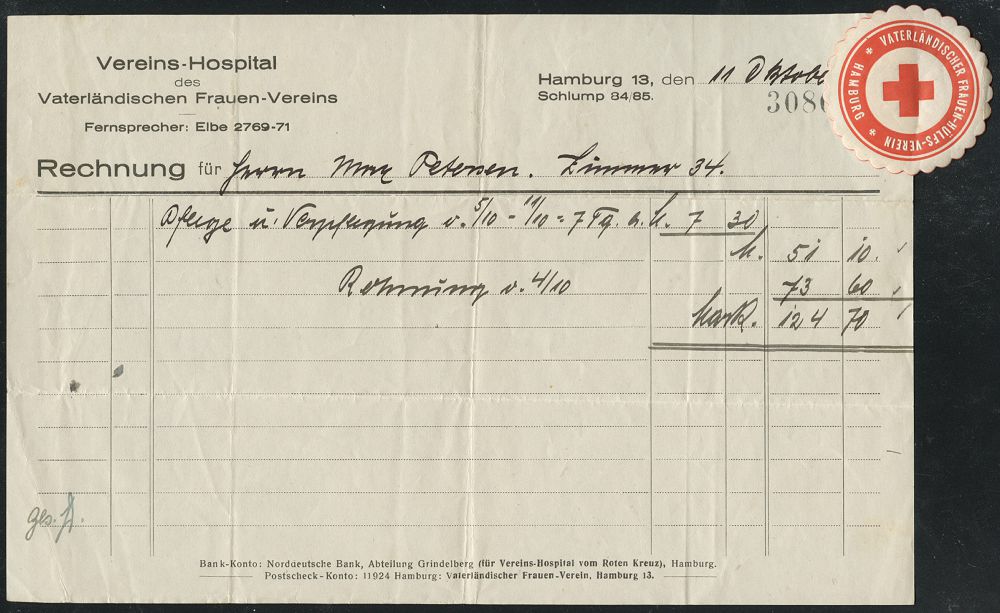 Vereins-Hospital
des
Vaterländischen Frauen-Vereins
Fernsprecher: Elbe 2769-71
Hamburg 13, den 11 Oktobe
Schlump 84/85.
3080
VATERLÄNDISCHER FRAUEN-HÜLFS-VEREIN * HAMBURG *
Rechnung für Herrn Max Petersen. Zimmer 34.
Pflege u. Verpflegung v. 5/10 - 11/10 = 7 Tg. á M. 7 30
M. 51 10.
Rechnung v. 4/10 73 60
Mark. 124 70
ges.
Bank-Konto: Norddeutsche Bank, Abteilung Grindelberg (für Vereins-Hospital vom Roten Kreuz), Hamburg.
Postscheck-Konto: 11924 Hamburg: Vaterländischer Frauen-Verein, Hamburg 13.